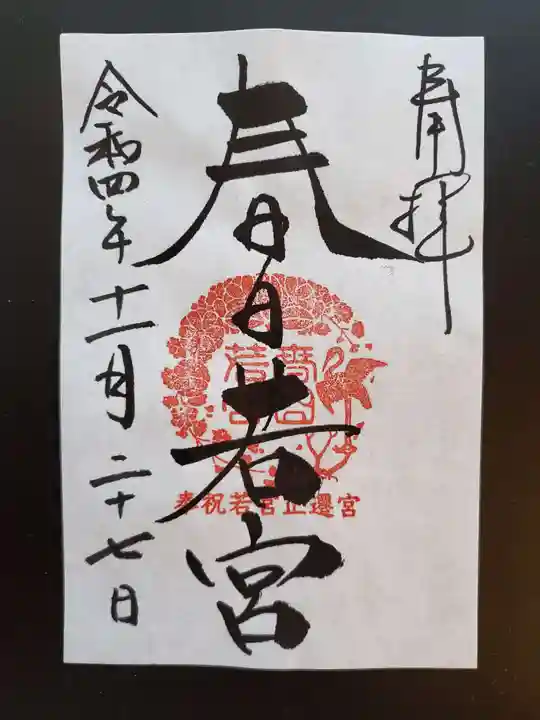 奉拝
春日若宮
春日
若宮
奉祝若宮正遷宮
令和四年十一月二十七日